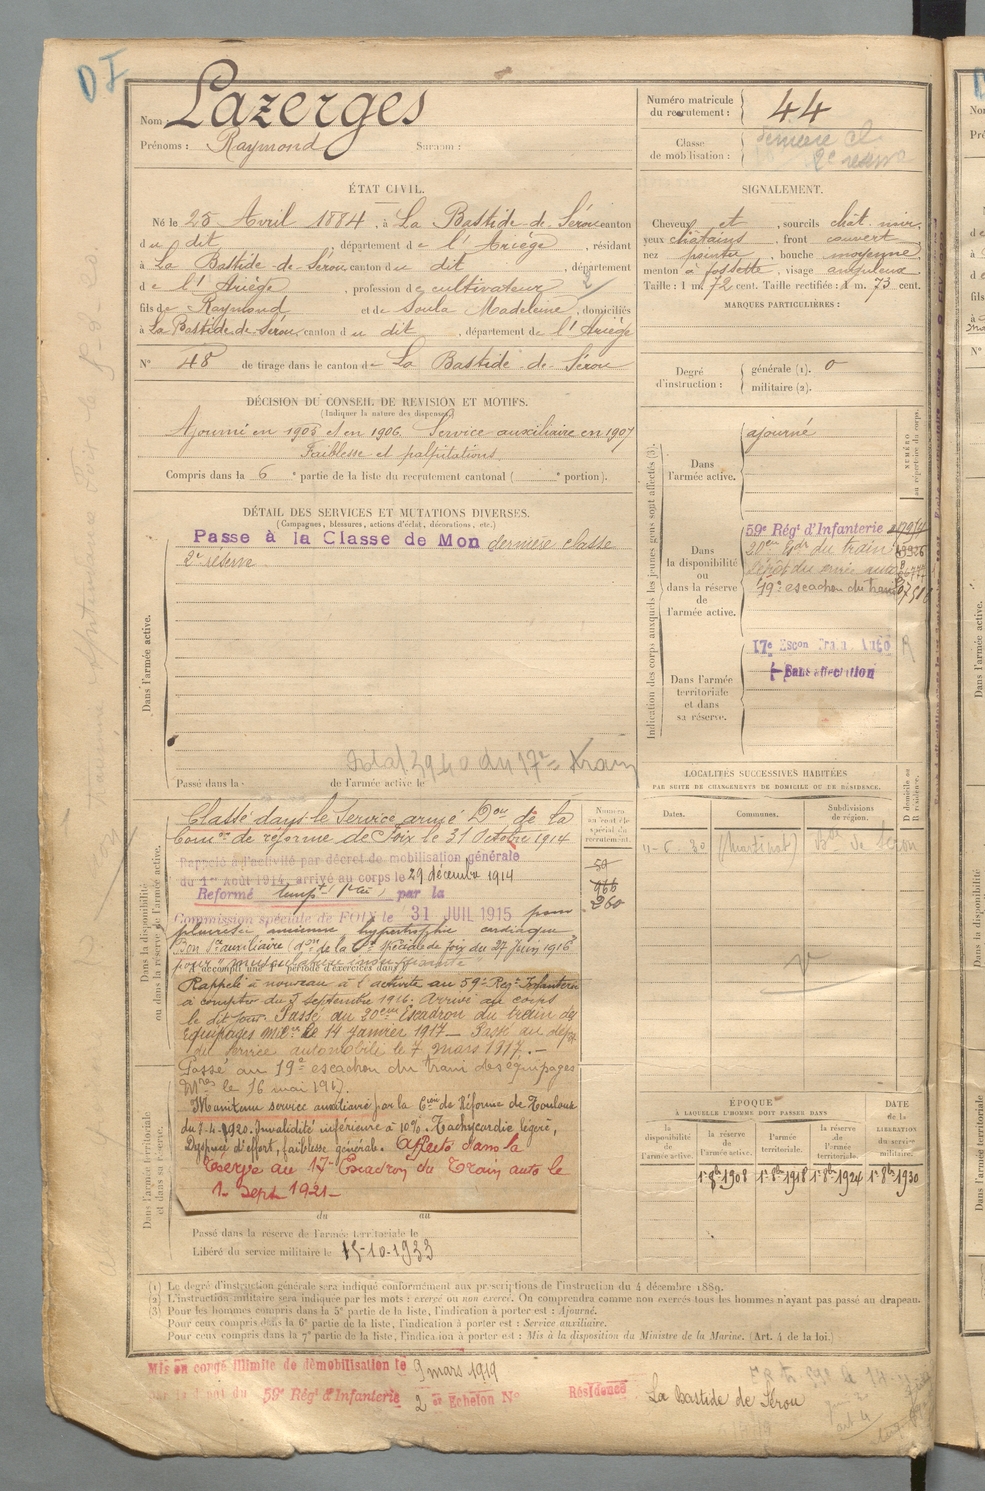 DI
Nom : Lazerges
Prénoms : Raymond Surnom :
Numéro matricule du recrutement : 44
Classe de mobilisation : dernière cl.
2e réserve
ÉTAT CIVIL.
Né le 25 Avril 1884, à La Bastide-de-Sérou canton
du dit, département de l'Ariège, résidant
à La Bastide-de-Sérou, canton du dit, département
de l'Ariège, profession de cultivateur
fils de Raymond et de Soula Madeleine, domiciliés
à La Bastide-de-Sérou, canton du dit, département de l'Ariège
N° 48 de tirage dans le canton de La Bastide-de-Sérou
SIGNALEMENT.
Cheveux et, sourcils chât. noir,
yeux châtains, front couvert,
nez pointu, bouche moyenne,
menton à fossette, visage anguleux.
Taille : 1 m. 72 cent. Taille rectifiée : 1 m. 73 cent.
MARQUES PARTICULIÈRES :
Degré d'instruction : générale (1). 0
militaire (2).
DÉCISION DU CONSEIL DE REVISION ET MOTIFS.
(Indiquer la nature des dispenses)
Ajourné en 1905 et en 1906. Service auxiliaire en 1907
Faiblesse et palpitations.
Compris dans la 6e partie de la liste du recrutement cantonal ( e portion).
DÉTAIL DES SERVICES ET MUTATIONS DIVERSES.
(Campagnes, blessures, actions d'éclat, décorations, etc.)
Passe à la Classe de Mon dernière classe
2e réserve
Dans l'armée active.
Passé dans la de l'armée active le
Indication des corps auxquels les jeunes gens sont affectés (3).
NUMÉRO au répertoire du corps.
Dans l'armée active.
ajourné
Dans la disponibilité ou dans la réserve de l'armée active.
59e Régt d'Infanterie
20eme Edr du train
Dépôt du service auto
19e escadron du train
Dans l'armée territoriale et dans sa réserve.
17e Escon Train Auto
Sans affectation
LOCALITÉS SUCCESSIVES HABITÉES
PAR SUITE DE CHANGEMENTS DE DOMICILE OU DE RÉSIDENCE.
Dates. Communes. Subdivisions de région.
D domicile ou R résidence.
Dans la disponibilité ou dans la réserve de l'armée active.
Classé dans le Service armé Don de la
Comon de réforme de Foix le 31 Octobre 1914
Rappelé à l'activité par décret de mobilisation générale
du 1er Août 1914, arrivé au corps le 29 décembre 1914
Réformé tempt par la
Commission spéciale de FOIX le 31 JUIL 1915 pour
pleurésie ancienne hypertrophie cardiaque
Bon Sce auxiliaire (don de la Con Spéciale de Foix du 27 Juin 1916
pour "musculature insuffisante"
A accompli une 1re période d'exercices dans
Rappelé à nouveau à l'activité au 59e Régt Infanterie
à compter du 3 septembre 1916. Arrivé au corps
le dit jour. Passé au 20eme Escadron du train des
équipages mres le 14 janvier 1917 — Passé au dépôt
du service automobile le 7 mars 1917. —
Passé au 19e escadron du train des équipages
Mres le 16 mai 1917.
Maintenu service auxiliaire par la Con de Réforme de Toulouse
du 1.4.1920. Invalidité inférieure à 10%. Tachycardie légère,
Dyspnée d'effort, faiblesse générale. Affecté dans la
Réserve au 17e Escadron du Train auto le
1. Sept. 1921-
du au
Dans l'armée territoriale et dans sa réserve.
Passé dans la réserve de l'armée territoriale le
Libéré du service militaire le 15-10-1933
Numéro au contrôle spécial du recrutement.
260
ÉPOQUE
À LAQUELLE L'HOMME DOIT PASSER DANS
la disponibilité de l'armée active. la réserve de l'armée active. l'armée territoriale. la réserve de l'armée territoriale. DATE de la LIBÉRATION du service militaire.
1er 8bre 1908 1er 8bre 1918 1er 8bre 1924 1er 8bre 1930
(1) Le degré d'instruction générale sera indiqué conformément aux prescriptions de l'instruction du 4 décembre 1889.
(2) L'instruction militaire sera indiquée par les mots : exercé ou non exercé. On comprendra comme non exercés tous les hommes n'ayant pas passé au drapeau.
(3) Pour les hommes compris dans la 5e partie de la liste, l'indication à porter est : Ajourné.
Pour ceux compris dans la 6e partie de la liste, l'indication à porter est : Service auxiliaire.
Pour ceux compris dans la 7e partie de la liste, l'indication à porter est : Mis à la disposition du Ministre de la Marine. (Art. 4 de la loi.)
Mis en congé illimité de démobilisation le 9 mars 1919
59e Régt d'Infanterie 2 Echelon No Résidence La Bastide de Sérou